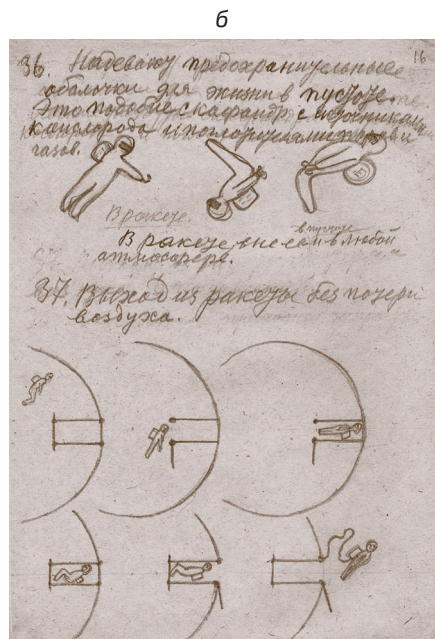 б
36. Надеваю предохранительные 16
оболочки для жизни в пустоте.
Это подобие скафандр с источником
кислорода и поглотителями
газов.
В ракете.
в пустоте
В ракете, вне ея и в любой
атмосфере.
37. Выход из ракеты без потери
воздуха.